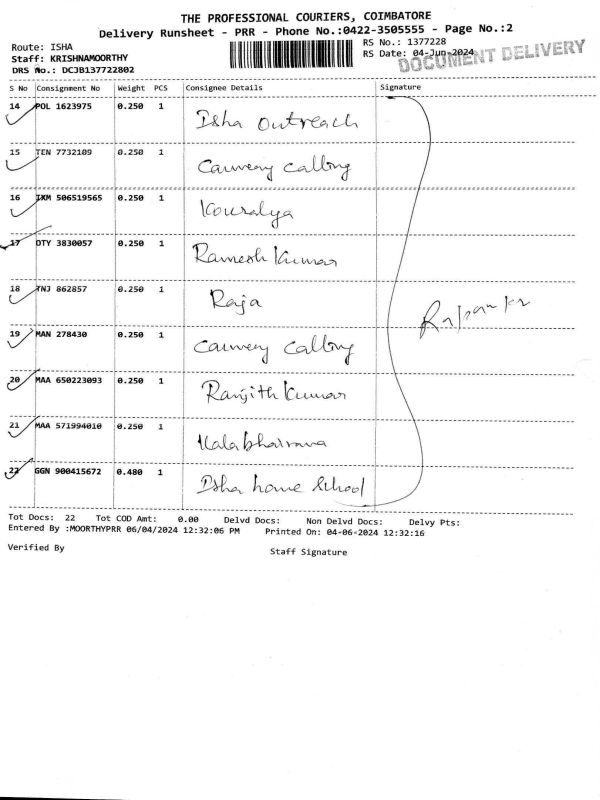 THE PROFESSIONAL COURIERS, COIMBATORE
Delivery Runsheet - PRR - Phone No.:0422-3505555 - Page No.:2
Route: ISHA
Staff: KRISHNAMOORTHY
DRS No.: DCJB137722802
RS No.: 1377228
RS Date: 04-Jun-2024
DOCUMENT DELIVERY
S No Consignment No Weight PCS Consignee Details Signature
14 POL 1623975 0.250 1 Isha Outreach
15 TEN 7732109 0.250 1 Cauvery Calling
16 IKM 506519565 0.250 1 Kousalya
17 OTY 3830057 0.250 1 Ramesh Kumar
18 TNJ 862857 0.250 1 Raja
19 MAN 278430 0.250 1 Cauvery Calling
20 MAA 650223093 0.250 1 Ranjith Kumar
21 MAA 571994010 0.250 1 Kalabhairava
22 GGN 900415672 0.480 1 Isha home School
Tot Docs: 22 Tot COD Amt: 0.00 Delvd Docs: Non Delvd Docs: Delvy Pts:
Entered By :MOORTHYPRR 06/04/2024 12:32:06 PM Printed On: 04-06-2024 12:32:16
Verified By Staff Signature